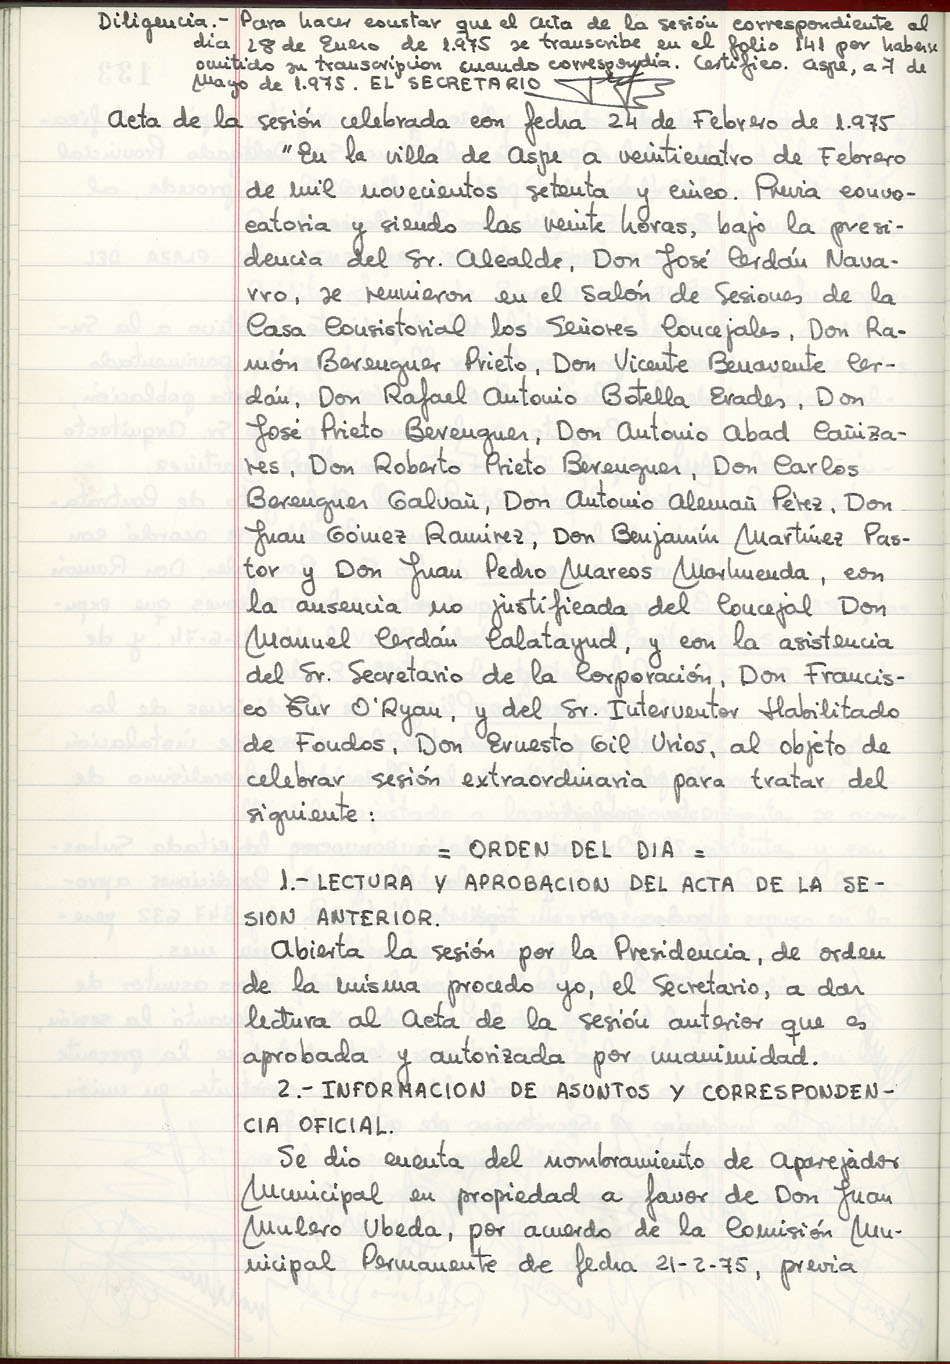 Diligencia.- Para hacer constar que el acta de la sesión correspondiente al
dia 28 de Enero de 1.975 se transcribe en el folio 141 por haberse
omitido su transcripcion cuando correspondia. Certifico. Aspe, a 7 de
Mayo de 1.975. EL SECRETARIO
Acta de la sesión celebrada con fecha 24 de Febrero de 1.975
"En la villa de Aspe a veinticuatro de Febrero
de mil novecientos setenta y cinco. Previa convo-
catoria y siendo las veinte horas, bajo la presi-
dencia del Sr. Alcalde, Don José Cerdán Nava-
rro, se reunieron en el Salón de Sesiones de la
Casa Consistorial los Señores Concejales, Don Ra-
món Berenguer Prieto, Don Vicente Benavente Cer-
dán, Don Rafael Antonio Botella Erades, Don
José Prieto Berenguer, Don Antonio Abad Cañiza-
res, Don Roberto Prieto Berenguer, Don Carlos
Berenguer Galvañ, Don Antonio Alemañ Pérez, Don
Juan Gómez Ramírez, Don Benjamín Martínez Pas-
tor y Don Juan Pedro Marcos Marhuenda, con
la ausencia no justificada del Concejal Don
Manuel Cerdán Calatayud, y con la asistencia
del Sr. Secretario de la Corporación, Don Francis-
co Tur O'Ryan, y del Sr. Interventor Habilitado
de Fondos, Don Ernesto Gil Urios, al objeto de
celebrar sesión extraordinaria para tratar del
siguiente:
= ORDEN DEL DIA =
1.- LECTURA Y APROBACION DEL ACTA DE LA SE-
SION ANTERIOR.
Abierta la sesión por la Presidencia, de orden
de la misma procedo yo, el Secretario, a dar
lectura al Acta de la sesión anterior que es
aprobada y autorizada por unanimidad.
2.- INFORMACION DE ASUNTOS Y CORRESPONDEN-
CIA OFICIAL.
Se dio cuenta del nombramiento de Aparejador
Municipal en propiedad a favor de Don Juan
Mulero Ubeda, por acuerdo de la Comisión Mu-
nicipal Permanente de fecha 21-2-75, previa